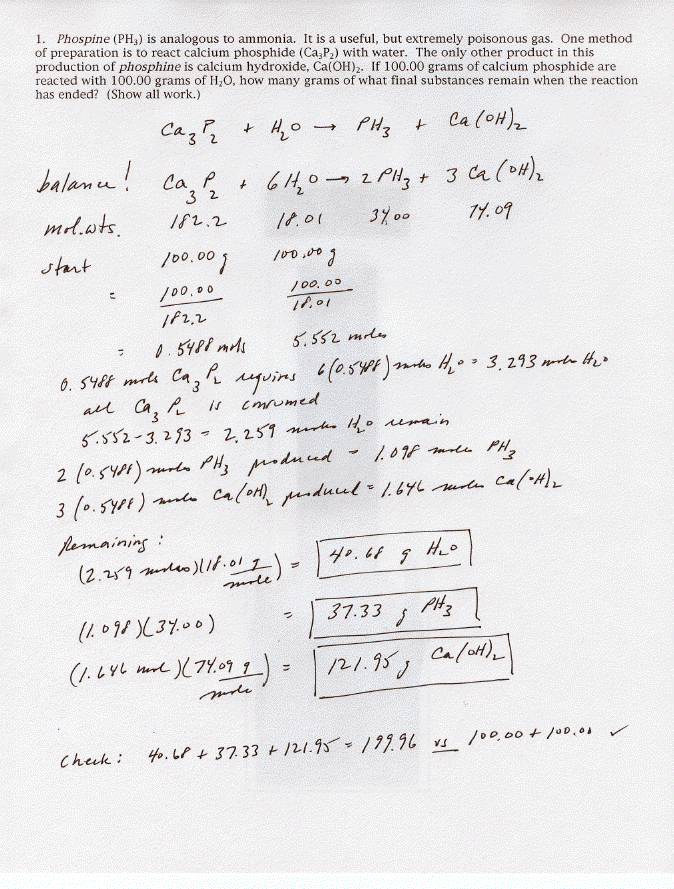 1. Phospine (PH₃) is analogous to ammonia. It is a useful, but extremely poisonous gas. One method
of preparation is to react calcium phosphide (Ca₃P₂) with water. The only other product in this
production of phosphine is calcium hydroxide, Ca(OH)₂. If 100.00 grams of calcium phosphide are
reacted with 100.00 grams of H₂O, how many grams of what final substances remain when the reaction
has ended? (Show all work.)
Ca₃P₂ + H₂O → PH₃ + Ca(OH)₂
balance! Ca₃P₂ + 6H₂O → 2PH₃ + 3Ca(OH)₂
mol.wts. 182.2 18.01 34.00 74.09
start 100.00 g 100.00 g
= 100.00/182.2 100.00/18.01
= 0.5488 mols 5.552 moles
0.5488 mols Ca₃P₂ requires 6(0.5488) moles H₂O = 3.293 moles H₂O
all Ca₃P₂ is consumed
5.552-3.293 = 2.259 moles H₂O remain
2(0.5488) moles PH₃ produced = 1.098 moles PH₃
3(0.5488) moles Ca(OH)₂ produced = 1.646 moles Ca(OH)₂
Remaining:
(2.259 moles)(18.01 g/mole) = 40.68 g H₂O
(1.098)(34.00) = 37.33 g PH₃
(1.646 mol)(74.09 g/mole) = 121.95 g Ca(OH)₂
Check: 40.68 + 37.33 + 121.95 = 199.96 vs 100.00 + 100.00 ✓